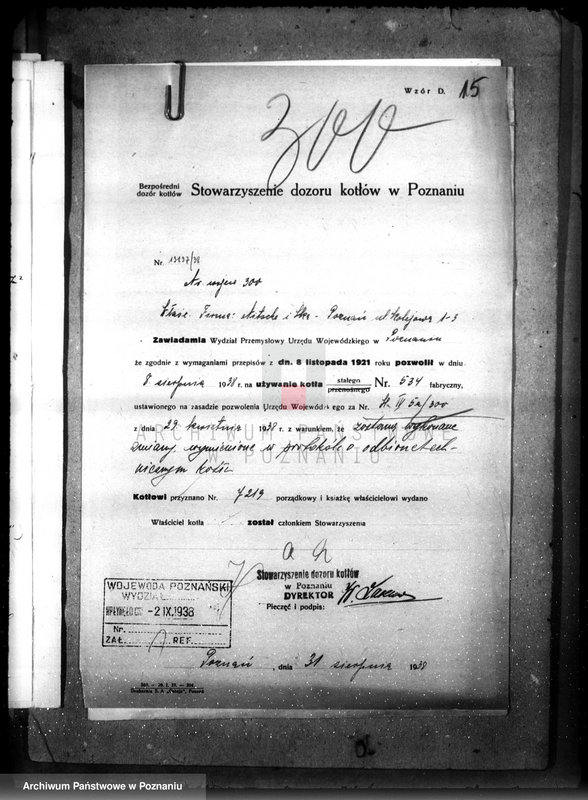 Wzór D. 15
300
Bezpośredni
dozór kotłów Stowarzyszenie dozoru kotłów w Poznaniu
Nr. 13137/38
Nr. wojew 300
Firma: i Ska - Poznań ul Kolejowa 1-3
Zawiadamia Wydział Przemysłowy Urzędu Wojewódzkiego w Poznaniu
że zgodnie z wymaganiami przepisów z dn. 8 listopada 1921 roku pozwolił w dniu
8 sierpnia 1938 r. na używanie kotła stałego przenośnego Nr. 534 fabryczny,
ustawionego na zasadzie pozwolenia Urzędu Wojewódzkiego za Nr. IV 5a/300
z dnia 29 kwietnia 1938 r. z warunkiem, że zostaną wykonane
zmiany wymienione w protokóle o odbiorze tech-
nicznym kotła
Kotłowi przyznano Nr. 7219 porządkowy i książkę właścicielowi wydano
Właściciel kotła został członkiem Stowarzyszenia
Stowarzyszenie dozoru kotłów
w Poznaniu
DYREKTOR
Pieczęć i podpis:
WOJEWODA POZNAŃSKI
WYDZIAŁ
WPŁYNĘŁO DN. -2 IX. 1938
Nr.
ZAŁ. REF.
Poznań, dnia 31 sierpnia 1938
ARCHIWUM PAŃSTWOWE
POZNANIU
Archiwum Państwowe w Poznaniu